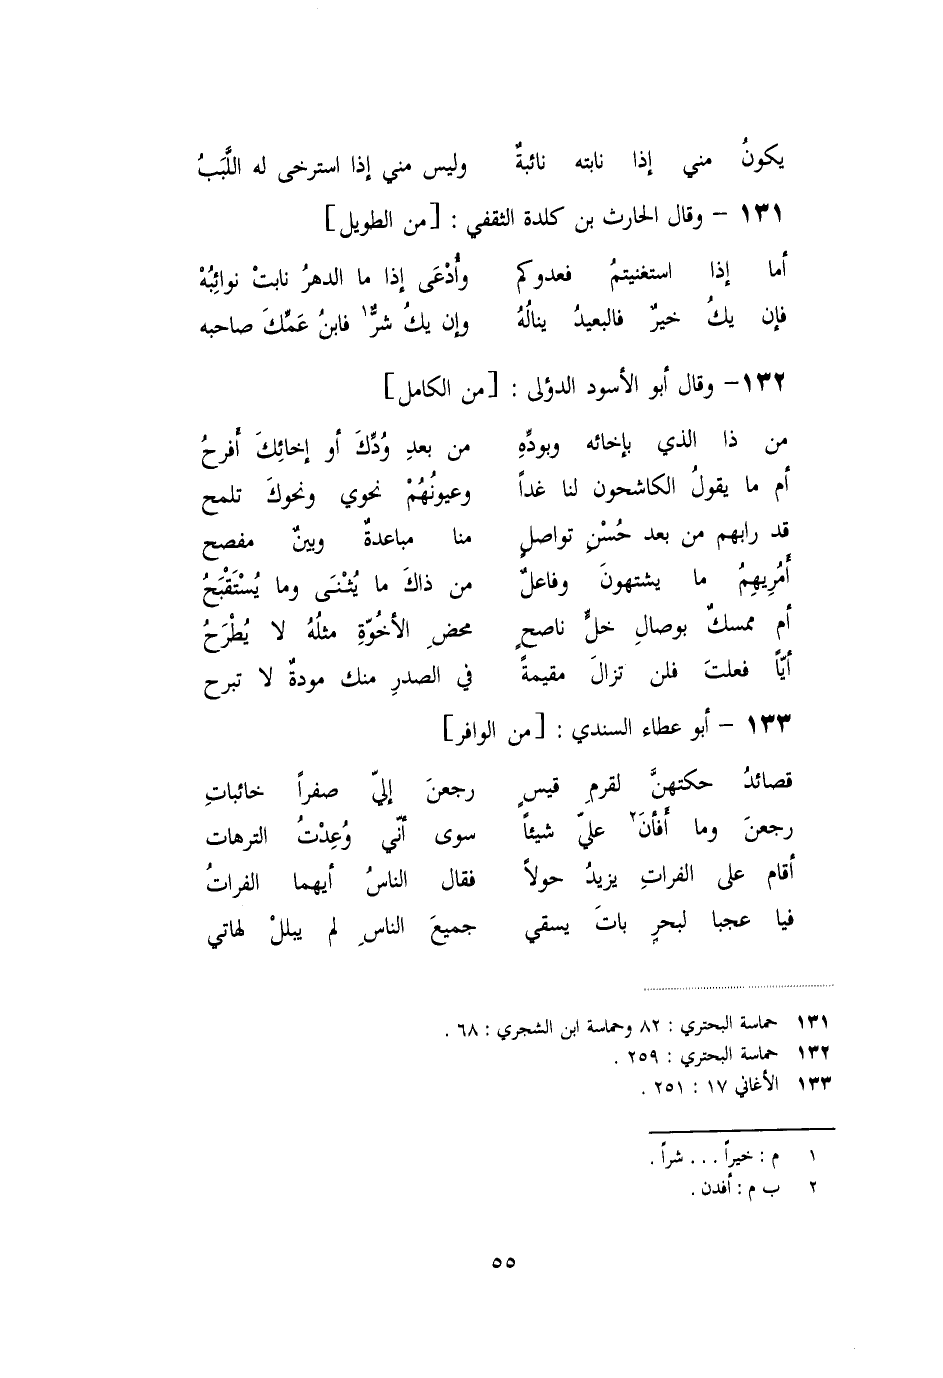 يكونُ مني إذا نابته نائبةٌ وليس مني إذا استرخى له اللَّبَبُ
١٣١ – وقال الحارث بن كلدة الثقفي : [من الطويل]
أما إذا استغنيتمُ فعدوكم وأُدْعَى إذا ما الدهرُ نابتْ نوائِبُهْ
فإن يكُ خيرٌ فالبعيدُ ينالُهُ وإن يكُ شرٌّ١ فابنُ عَمِّكَ صاحبه
١٣٢– وقال أبو الأسود الدؤلى : [من الكامل]
من ذا الذي بإخائه وبودِّهِ من بعدِ وُدِّكَ أو إخائِكَ أَفرحُ
أم ما يقولُ الكاشحون لنا غداً وعيونُهُمْ نحوي ونحوكَ تلمح
قد رابهم من بعد حُسْنِ تواصلٍ منا مباعدةٌ وبينٌ مفصح
أَمُرِيهِمُ ما يشتهونَ وفاعلٌ من ذاكَ ما يُثْنَى وما يُسْتَقْبَحُ
أم ممسكٌ بوصالِ خلٍّ ناصحٍ محضِ الأخُوّةِ مثلُهُ لا يُطْرَحُ
أيّاً فعلتَ فلن تزالَ مقيمةً في الصدرِ منك مودةٌ لا تبرح
١٣٣ – أبو عطاء السندي : [من الوافر]
قصائدُ حكتهنَّ لقرمِ قيسٍ رجعنَ إليّ صفراً خائباتِ
رجعنَ وما أَفأنَ٢ عليّ شيئاً سوى أنّي وُعِدْتُ الترهات
أقام على الفراتِ يزيدُ حولاً فقال الناسُ أيهما الفراتُ
فيا عجبا لبحرٍ باتَ يسقي جميعَ الناسِ لم يبللْ لهاتي
١٣١ حماسة البحتري : ٨٢ وحماسة ابن الشجري : ٦٨ .
١٣٢ حماسة البحتري : ٢٥٩ .
١٣٣ الأغاني ١٧ : ٢٥١ .
١ م : خيراً ... شراً .
٢ ب م : أفدن .
٥٥